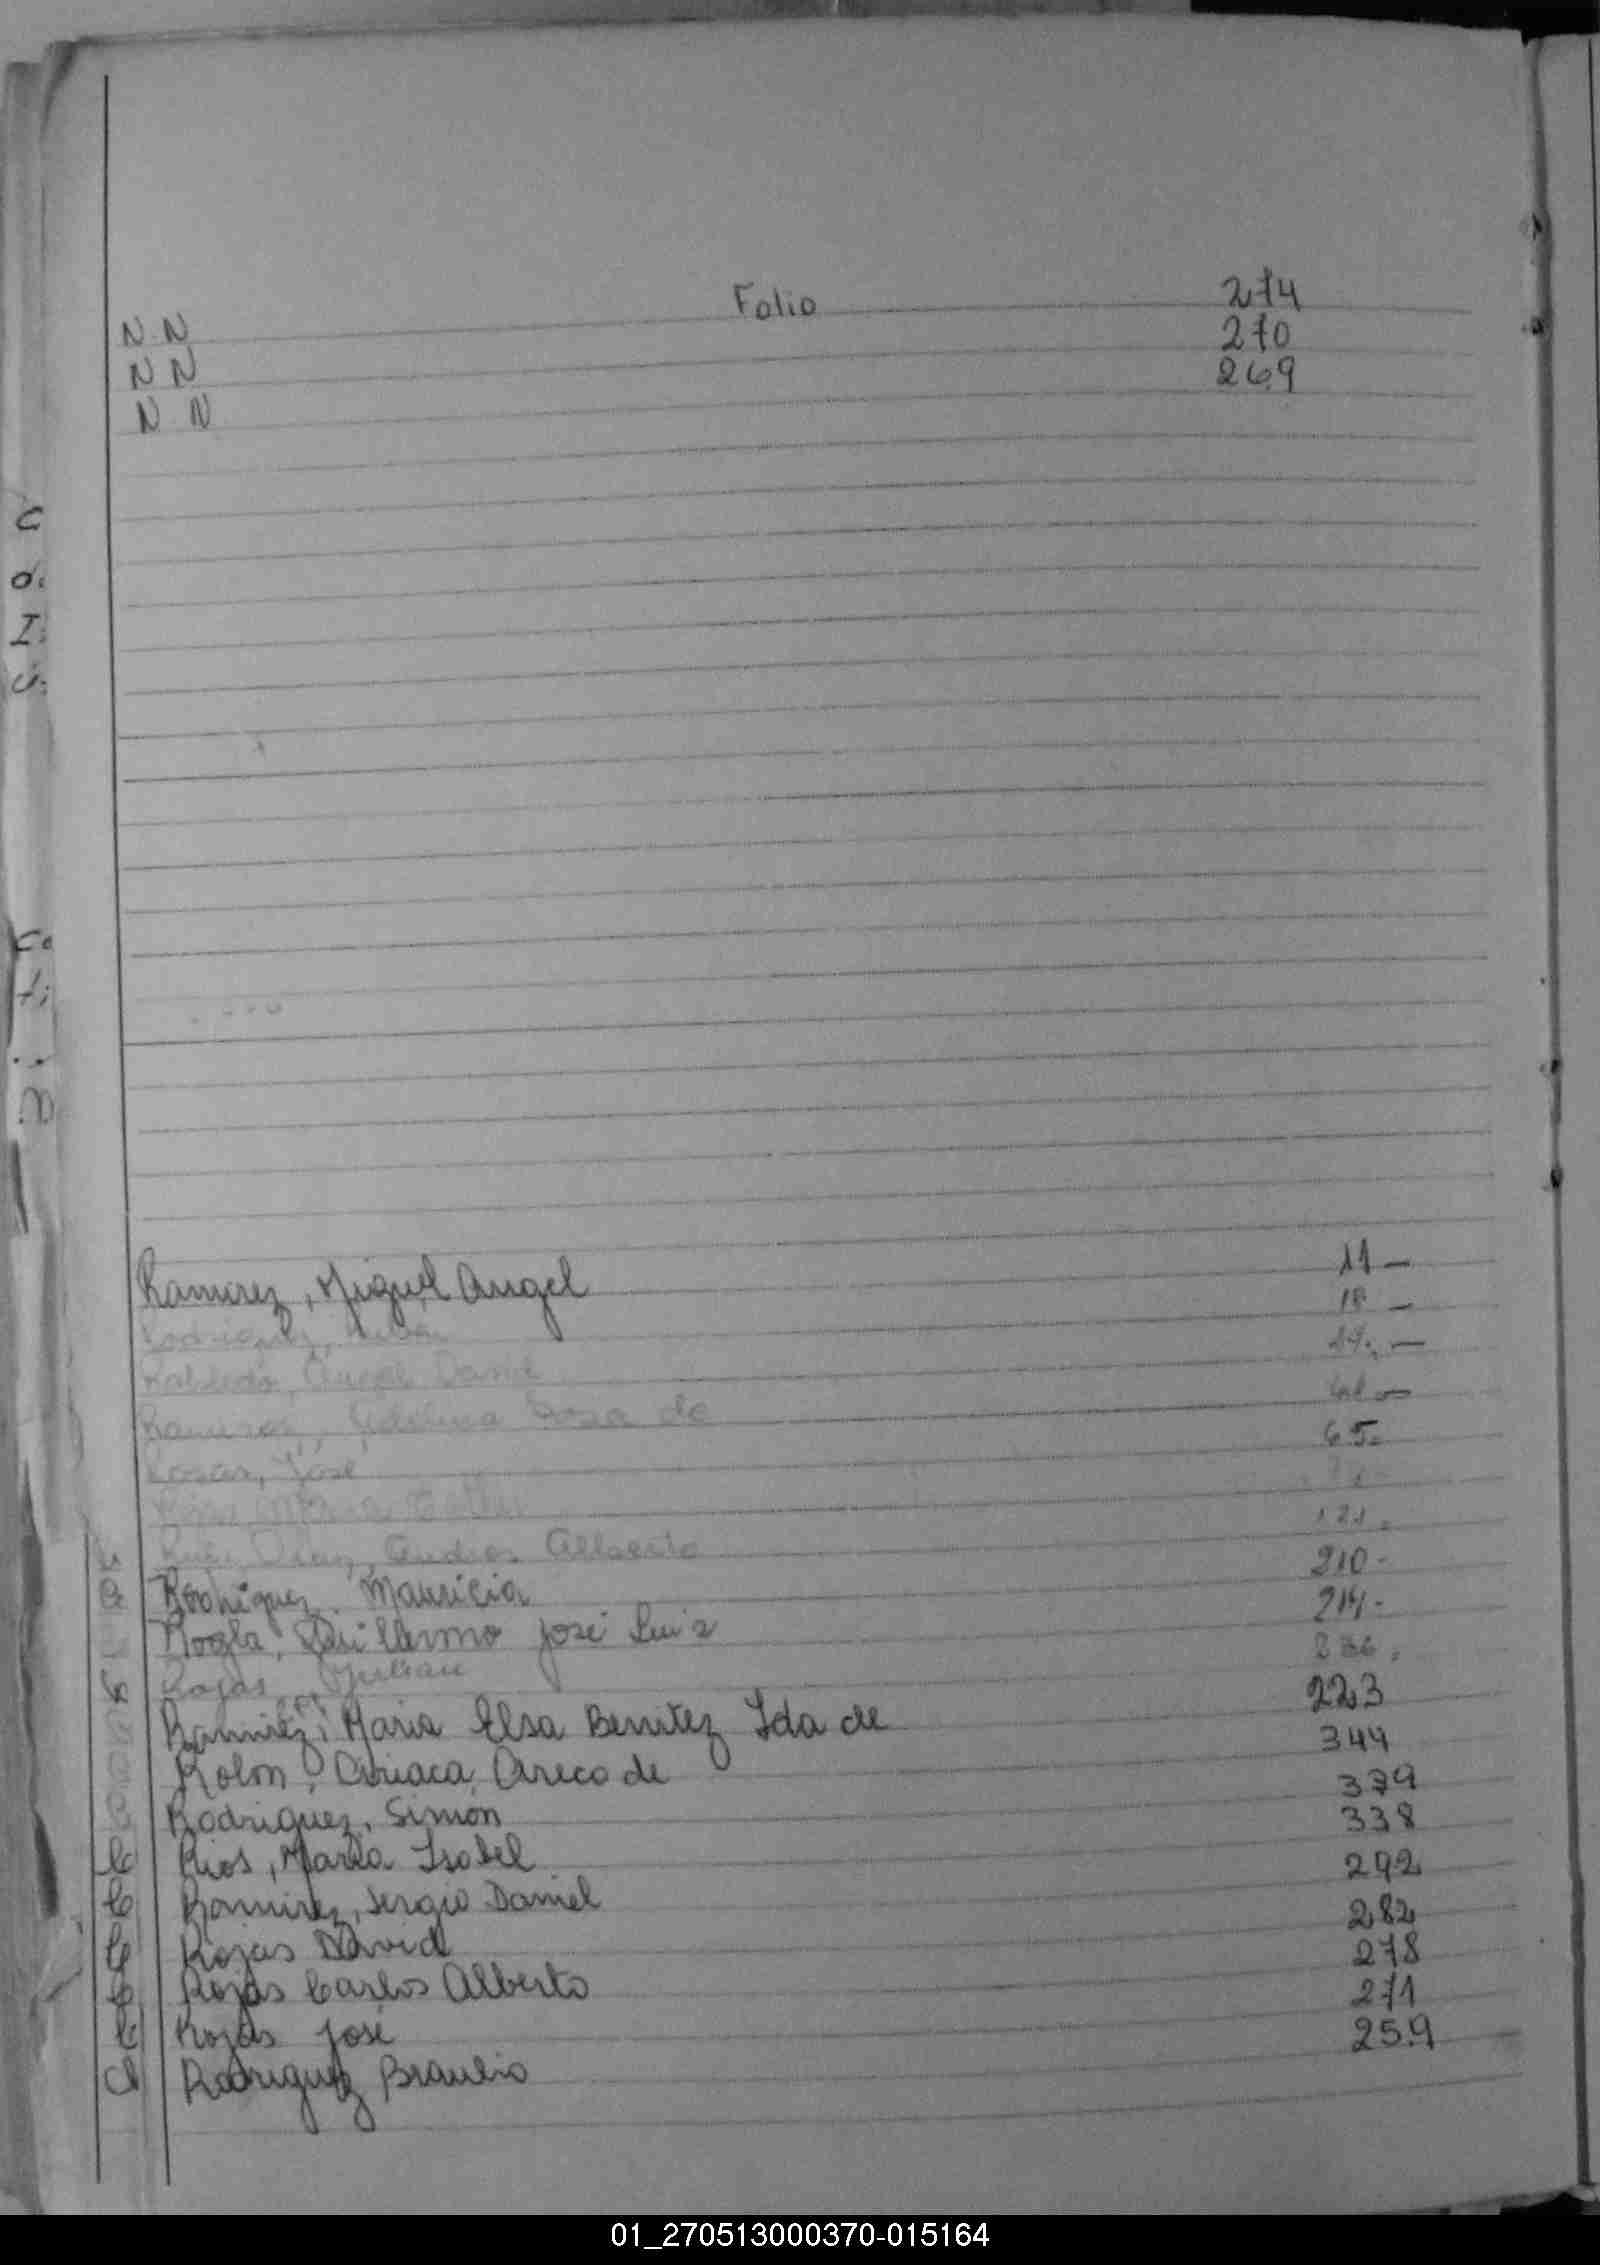 Folio
N.N 274
N N 270
N N 269
Ramirez, Miguel Angel 11 —
Rodriguez, 18 —
Robledo, Angel Daniel —
Ramirez, Adelina Rosa de
Rosas, José 65.
Ruiz Diaz, Andres Alberto 121.
Rodriguez Mauricia 210-
Guillermo José Luis 214-
Rojas Julian
Ramirez, Maria Elsa Benitez Vda de 223
Rolon, Ciriaca Areco de 344
Rodriguez, Simón 379
Rios, Maria Isabel 338
Ramirez, Sergio Daniel 292
Rojas David 282
Rojas Carlos Alberto 278
Rojas José 271
Rodriguez Braulio 259
01_270513000370-015164